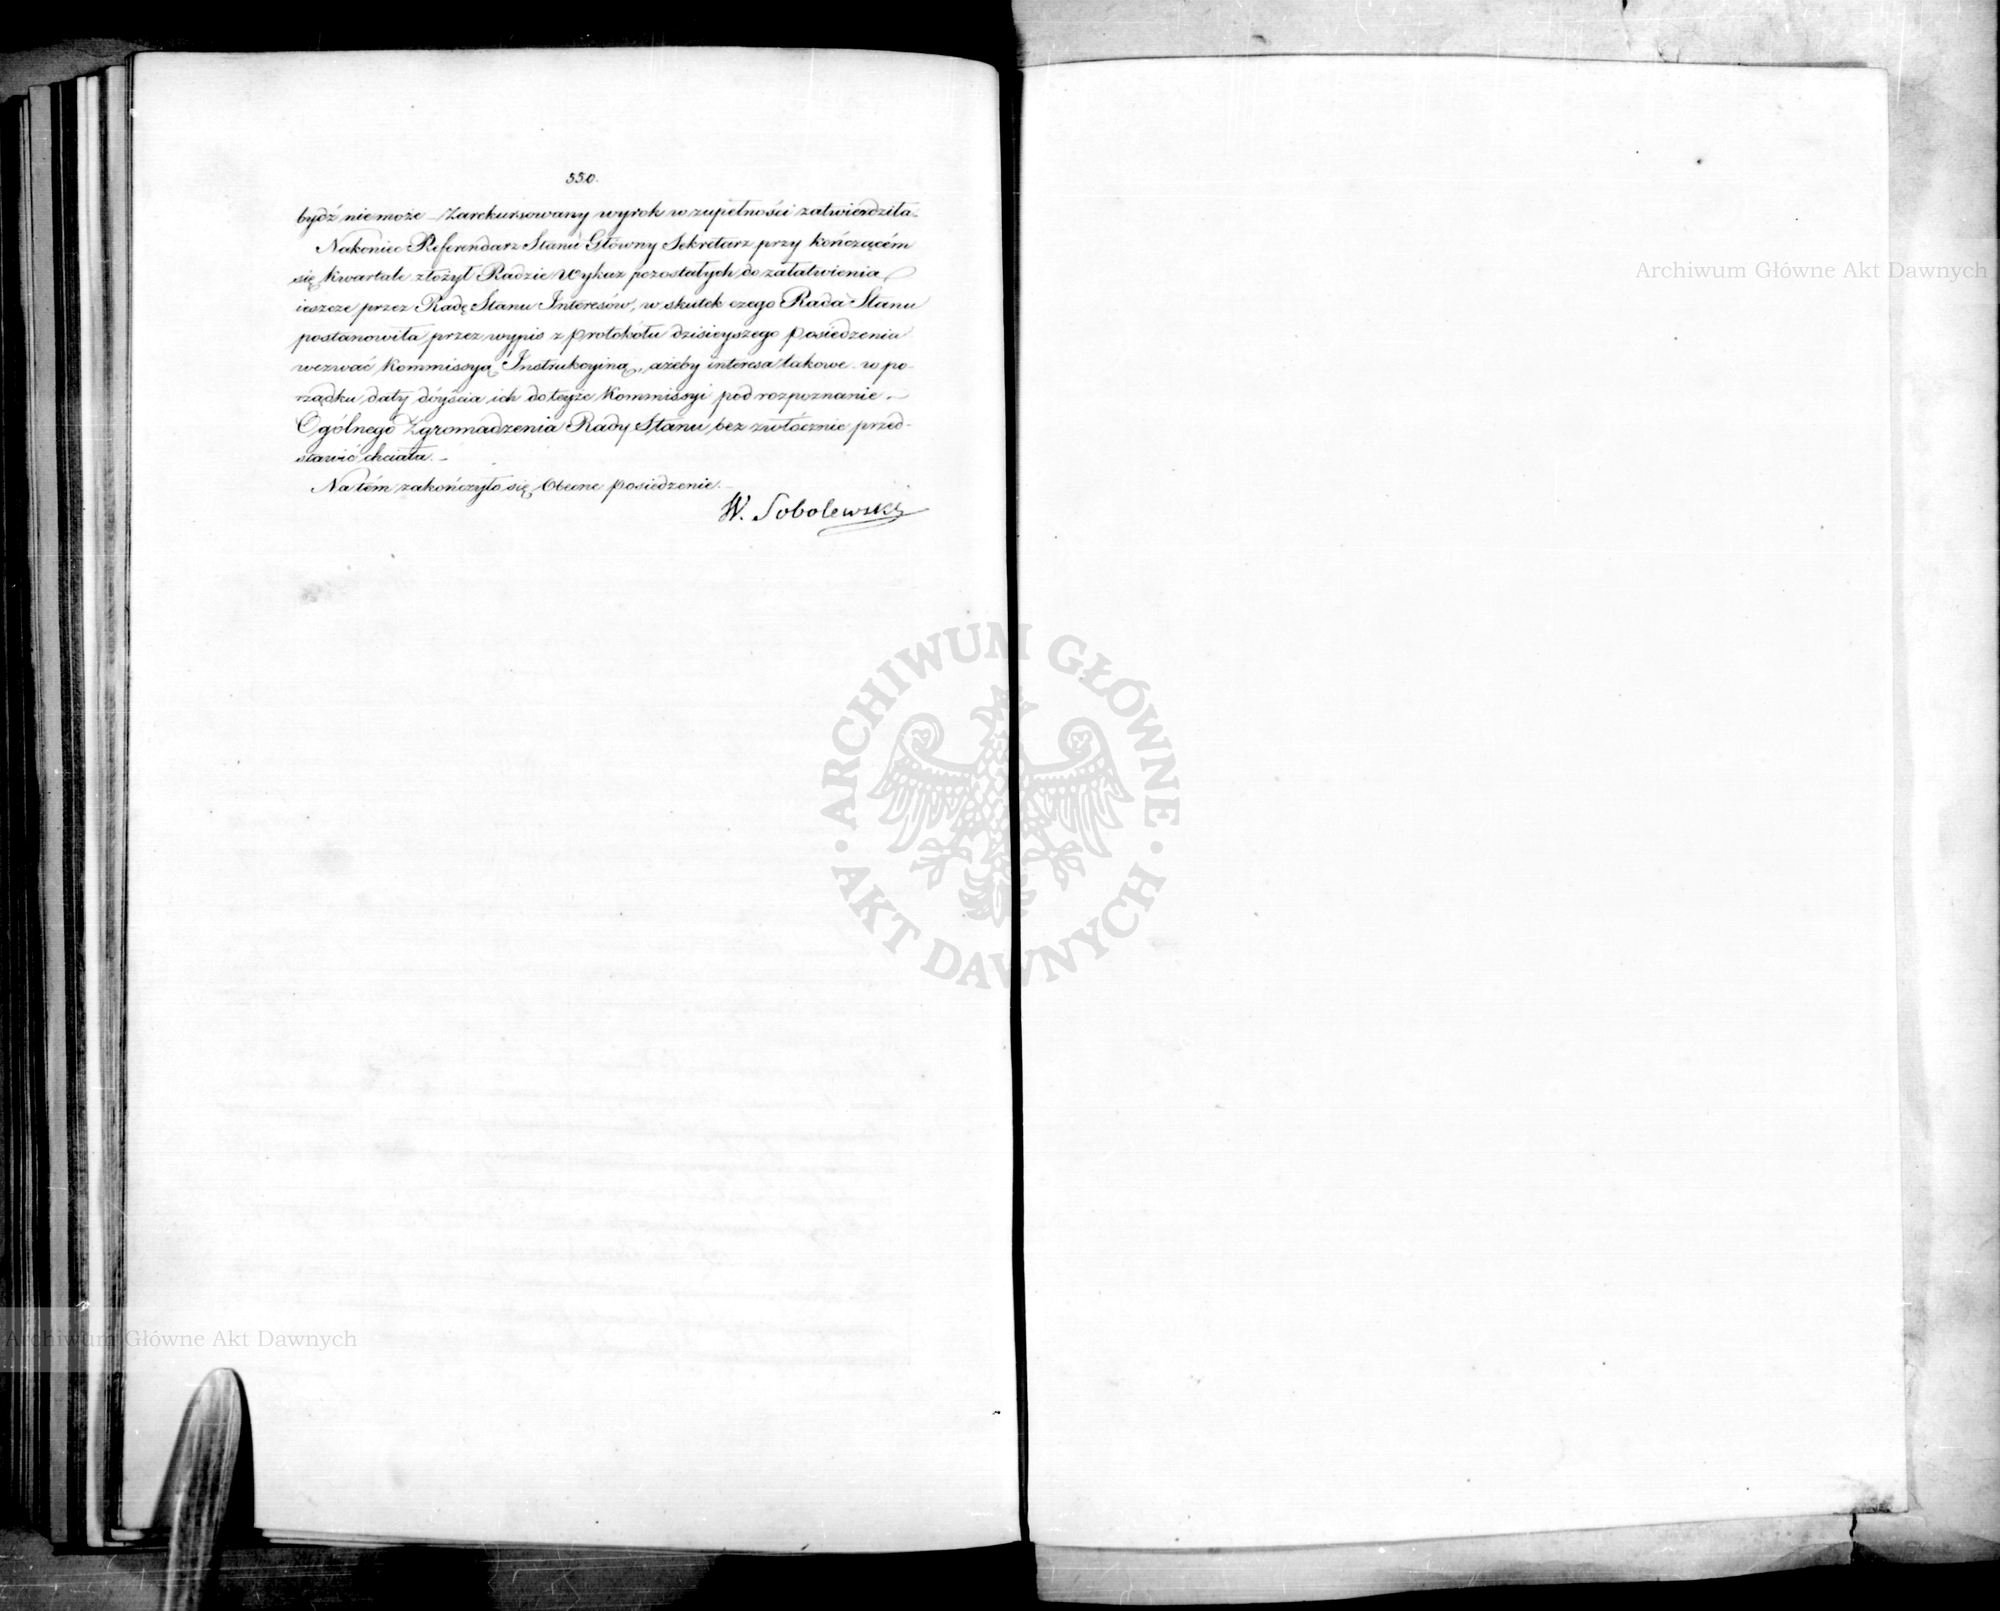 550.
bydź nie może – Zarekursowany wyrok w zupełności zatwierdziła.
Nakoniec Referendarz Stanu Główny Sekretarz przy kończącém
się kwartale złożył Radzie Wykaz pozostałych do załatwienia
ieszcze przez Radę Stanu Interesów, w skutek czego Rada Stanu
postanowiła przez wypis z protokółu dzisieyszego posiedzenia
wezwać Kommissyą Instrukcyiną, ażeby interesa takowe w po-
rządku daty dóyścia ich do teyże Kommissyi pod rozpoznanie
Ogólnego Zgromadzenia Rady Stanu bezzwłócznie przed-
stawić chciała. –
Na tém zakończyło się Obecne posiedzenie. –
W. Sobolewski
Archiwum Główne Akt Dawnych
ARCHIWUM GŁÓWNE · AKT DAWNYCH ·
Archiwum Główne Akt Dawnych